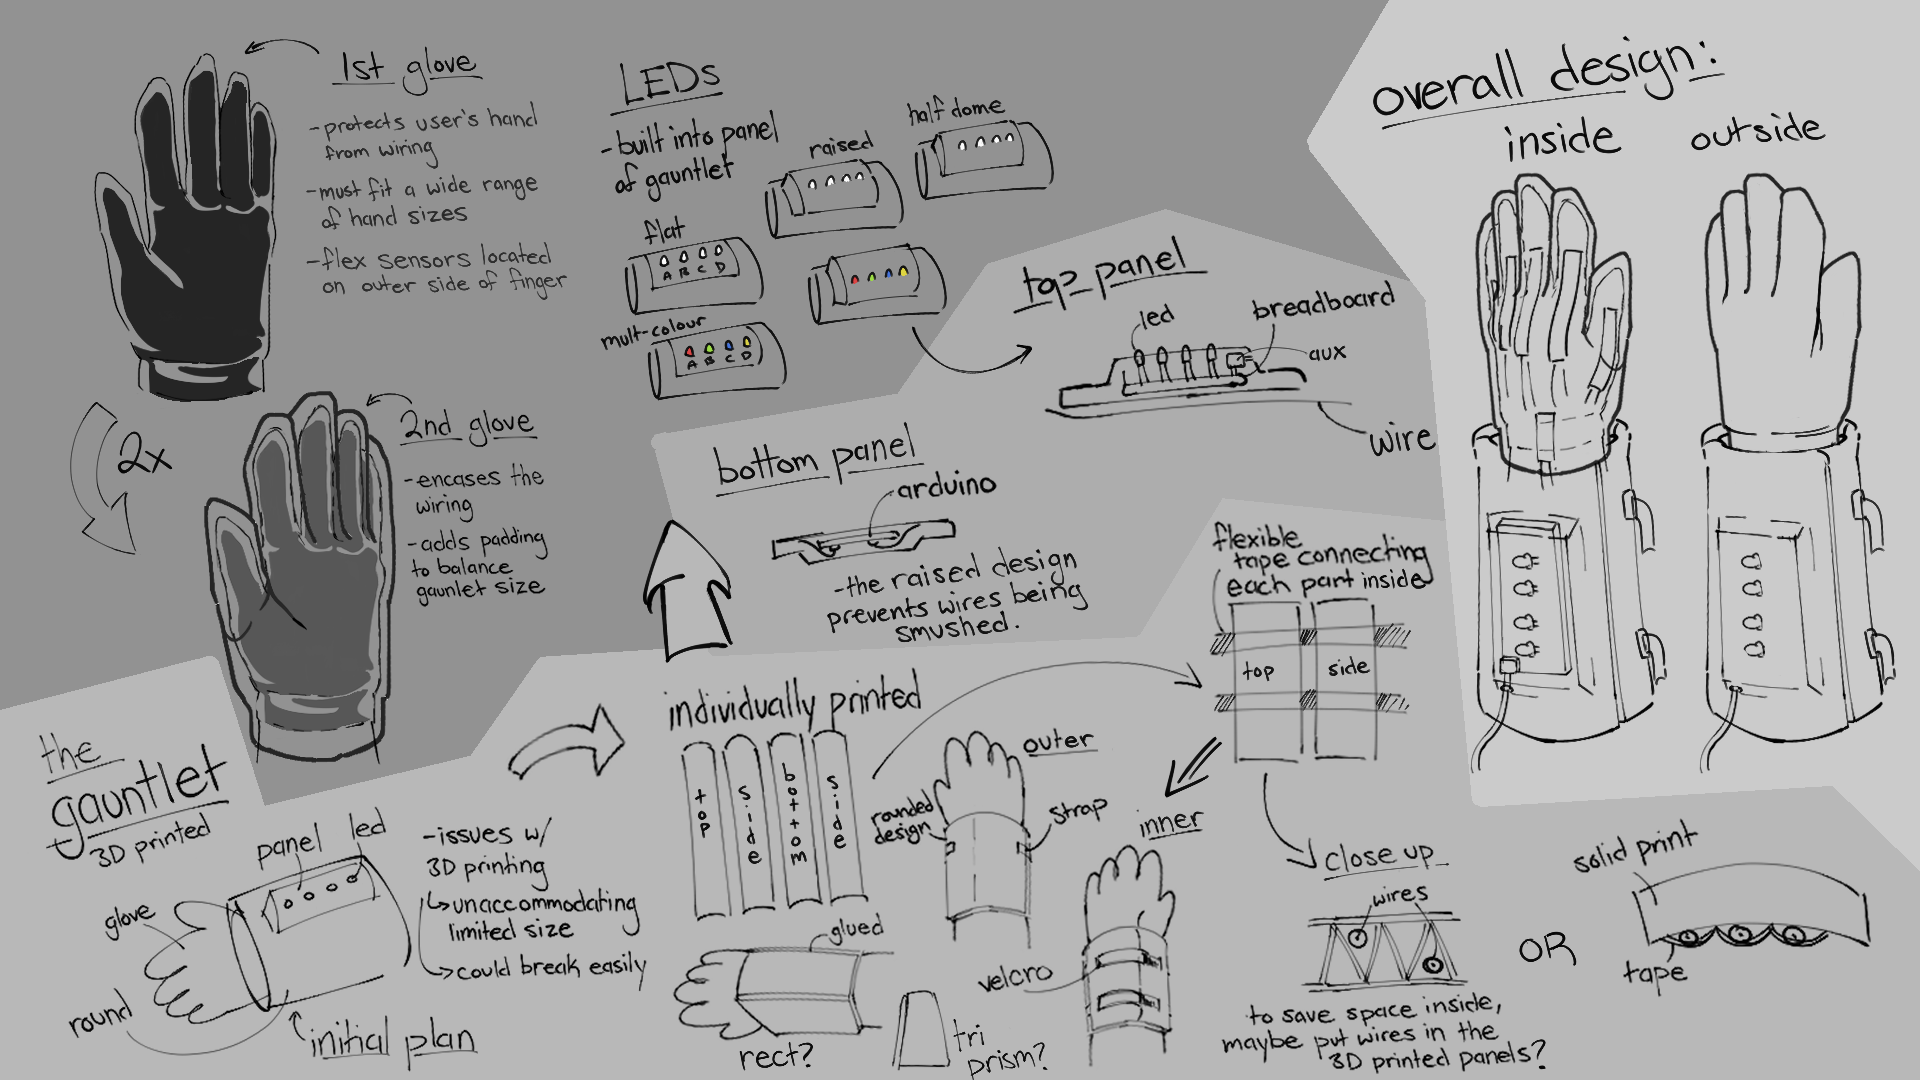 1st glove
-protects user's hand
from wiring
-must fit a wide range
of hand sizes
-flex sensors located
on outer side of finger
2x
2nd glove
-encases the
wiring
-adds padding
to balance
gaunlet size
LEDs
-built into panel
of gauntlet
raised
half dome
flat
A B C D
mult-colour
A B C D
top panel
led
breadboard
aux
wire
bottom panel
arduino
-the raised design
prevents wires being
smushed.
overall design:
inside
outside
the
gauntlet
3D printed
panel
led
glove
round
initial plan
-issues w/
3D printing
unaccommodating
limited size
could break easily
individually printed
top
side
bottom
side
glued
rect?
tri
prism?
outer
rounded
design
strap
inner
velcro
flexible
tape connecting
each part inside
top
side
close up
wires
OR
solid print
tape
to save space inside,
maybe put wires in the
3D printed panels?